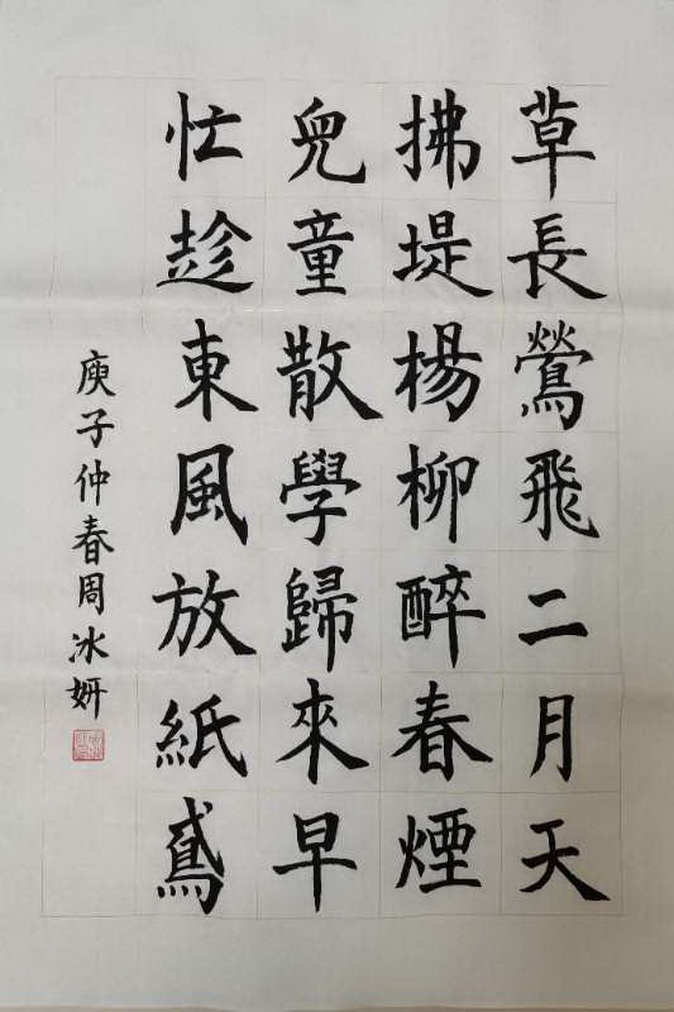 草長鶯飛二月天
拂堤楊柳醉春煙
兒童散學歸來早
忙趁東風放紙鳶
庚子仲春周冰妍